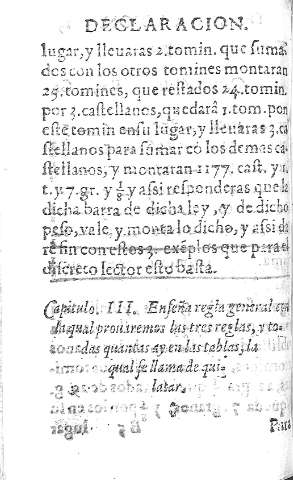 DECLARACION.
lugar, y lleuaras 2. tomin. que suma-
dos con los otros tomines montaran
25. tomines, que restados 24. tomin.
por 3. castellanos, quedarâ 1. tom. pon
este tomin en su lugar, y lleuaras 3. ca
stellanos para sumar cō los demas ca
stellanos, y montaran 1177. cast. y 1.
t. y 7. gr. y 1/8 y assi responderas que la
dicha barra de dicha ley, y de dicho
peso, vale, y monta lo dicho, y assi da
re fin con estos 3. exēplos que para el
discreto lector esto basta.
Capitulo. III. Enseña regla general con
la qual prouiremos las tres reglas, y to-
das quantas ay en las tablas, la
qual se llama de qui-
latar.
Para